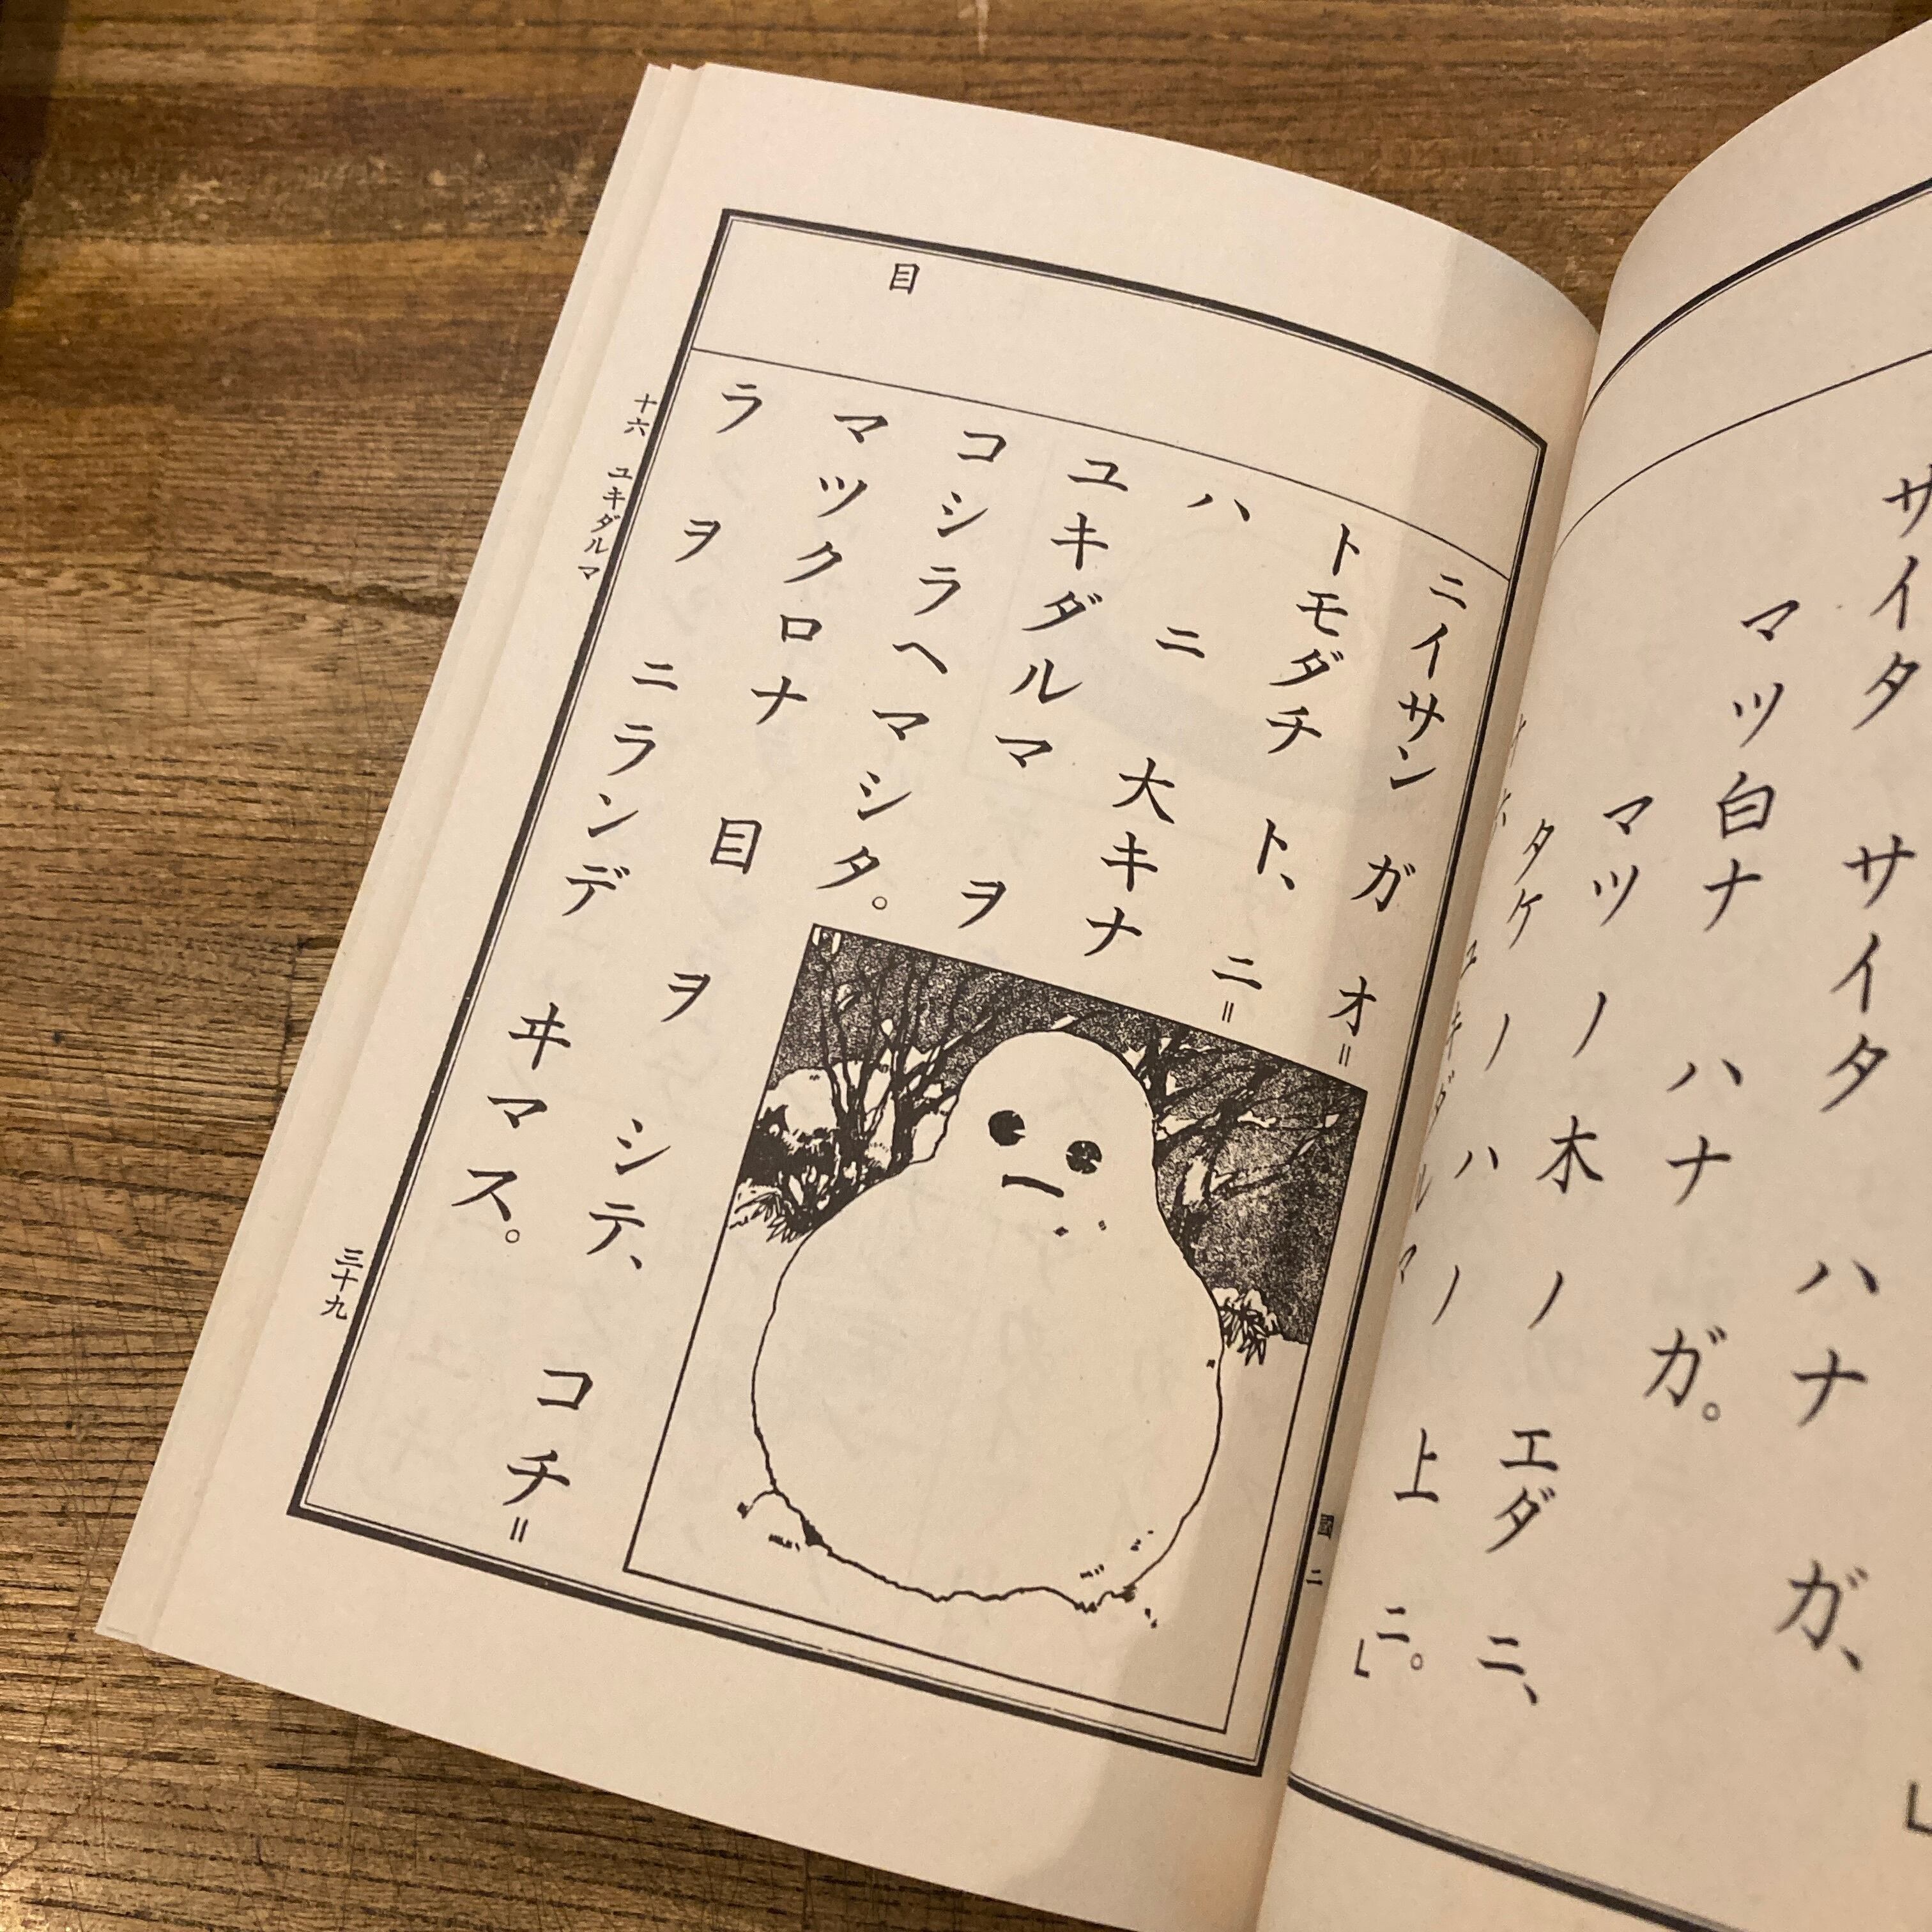 サイタ サイタ ハナ ガ、
マツ白ナ ハナ ガ。
マツ ノ 木 ノ エダ ニ、
タケ ノ ハ ノ 上 ニ。」
國 二
目
ニイサン ガ オ=
トモダチ ト、 ニ=
ハ ニ 大キナ
ユキダルマ ヲ
コシラヘマシタ。
マツクロナ 目 ヲ シテ、 コチ=
ラ ヲ ニランデ ヰマス。
十六 ユキダルマ
三十九